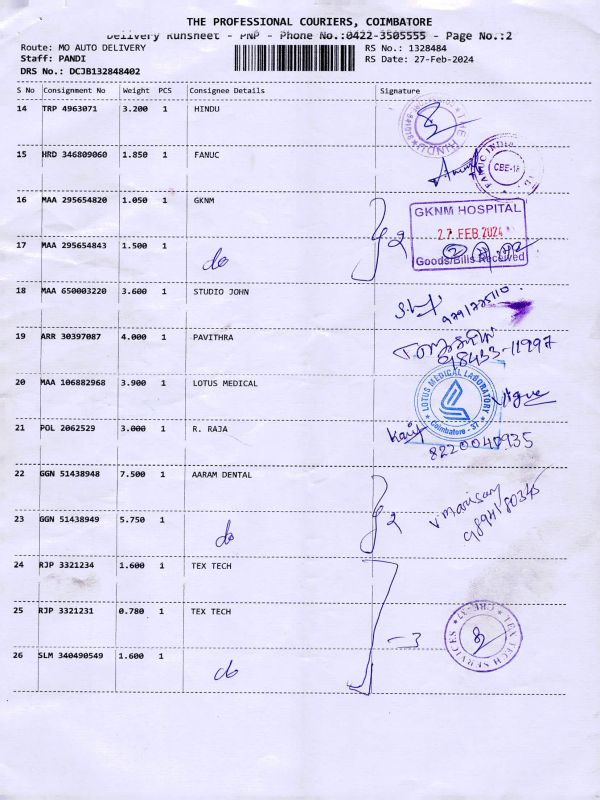 THE PROFESSIONAL COURIERS, COIMBATORE
Delivery Runsheet - PNP - Phone No.:0422-3505555 - Page No.:2
Route: MO AUTO DELIVERY RS No.: 1328484
Staff: PANDI RS Date: 27-Feb-2024
DRS No.: DCJB132848402
S No Consignment No Weight PCS Consignee Details Signature
14 TRP 4963071 3.200 1 HINDU
THE HINDU
15 HRD 346809060 1.850 1 FANUC
FANUC INDIA
CBE-18
16 MAA 295654820 1.050 1 GKNM
GKNM HOSPITAL
27 FEB 2024
Goods/Bills Received
17 MAA 295654843 1.500 1 do 2
18 MAA 650003220 3.600 1 STUDIO JOHN
9791725110
19 ARR 30397087 4.000 1 PAVITHRA
98433-11997
20 MAA 106882968 3.900 1 LOTUS MEDICAL
LOTUS MEDICAL LABORATORY
Coimbatore - 37
21 POL 2062529 3.000 1 R. RAJA
8220040935
22 GGN 51438948 7.500 1 AARAM DENTAL
23 GGN 51438949 5.750 1 do 2
24 RJP 3321234 1.600 1 TEX TECH
25 RJP 3321231 0.780 1 TEX TECH
- 3
TEX TECH SERVICES
CBE-37
26 SLM 340490549 1.600 1 do